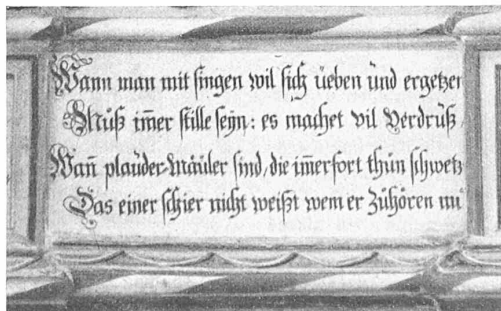 Wann man mit singen wil sich üeben ünd ergetzen
Müß im̄er stille seÿn: es machet vil Verdrüß,
Wan̄ plaüder-Mäüler sind, die im̄erfort thün schwetz
Das einer schier nicht weißt wem er Zühören mü